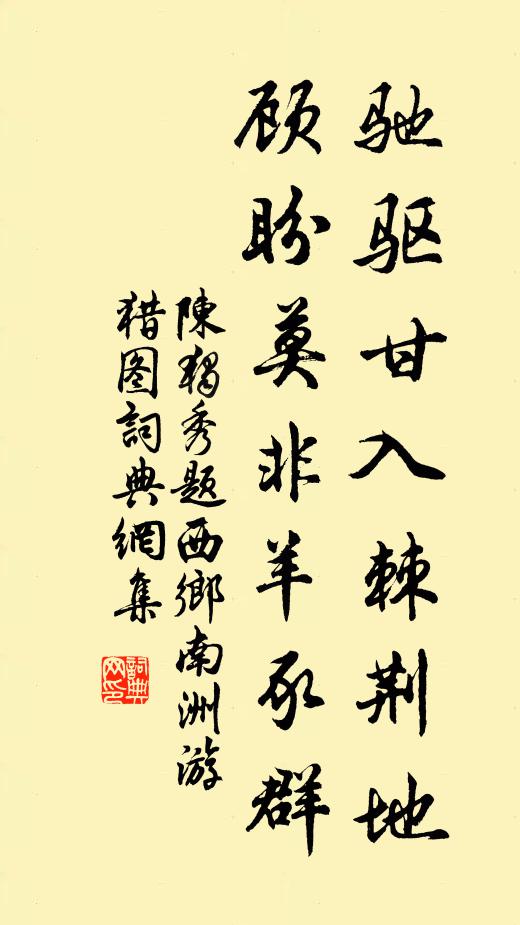 驰驱甘入棘荆地
顾盼莫非羊豕群
陳獨秀题西鄉南洲游
猎图詞典網集
詞典网印